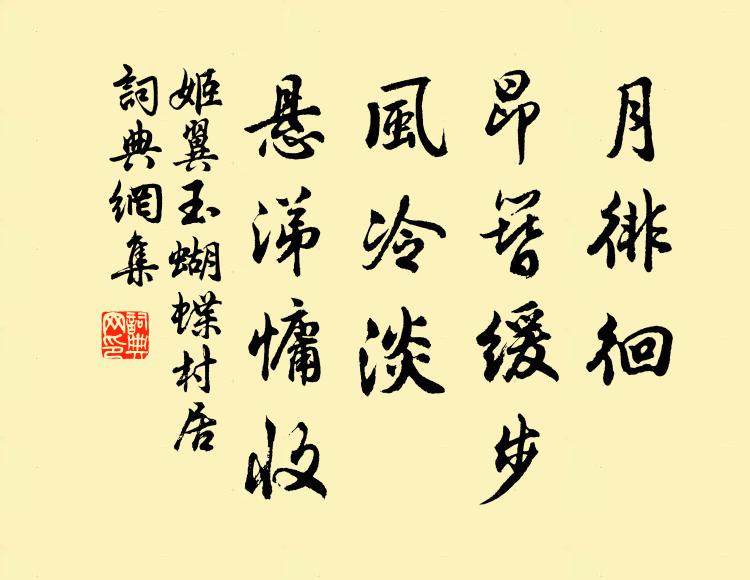 月徘徊
昂簪緩步
風冷淡
悬涕慵收
姬翼玉蝴蝶村居
詞典網集
詞典
网印